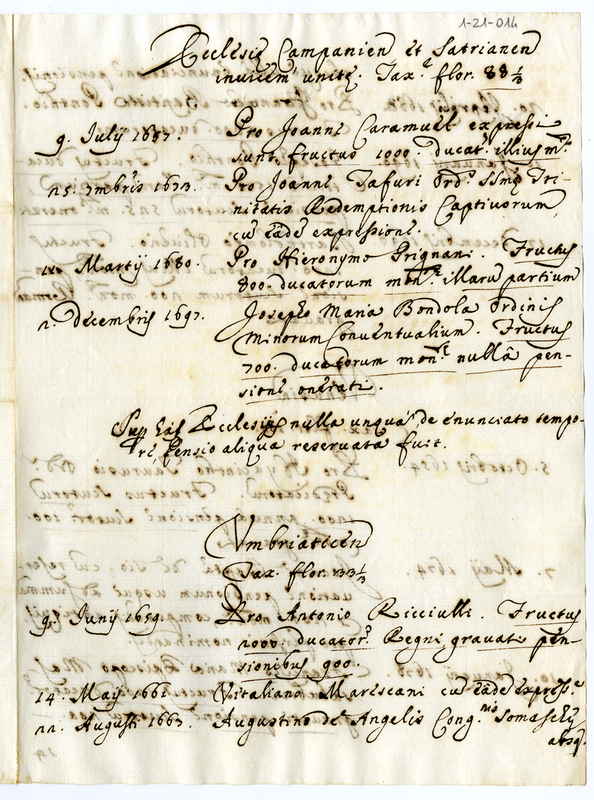 1-21-014
Ecclesię Campanien et Satrianen
invicem unitę. Tax.ᵉ flor. 88 1/3
9. Julij 1657. Pro Joanne Caramuel expressi
sunt fructus 1000. ducat. illius m.ᵗᵉ
25. 7mbris 1673. Pro Joanne Tafuri Ord.ˢ SSmę Tri-
nitatis Redemptionis Captivorum,
cū eādē expressione.
Martij 1680. Pro Hieronymo Prignani. Fructus
800. ducatorum mon.ᵗᵉ illarū partium
2. Decembris 1697. Josepho Maria Bondola Ordinis
Minorum Conventualium. Fructus
700. ducatorum mon.ᵗᵉ nullâ pen-
sione onerati.
Ecclesijs nulla unquā, de enunciato tempo-
re, pensio aliqua reservata fuit.
Umbriaticen
Tax. flor. 133 1/3
9. Junij 1659. Pro Antonio Ricciulli. Fructus
2000. ducator. Regni, gravat. pen-
sionibus 900.
14. Maij 1661. Vitaliano Marescani cū eādē express.ᵉ
22. Augusti 1663. Augustino de Angelis Cong.ⁿⁱˢ Somaschę
absq.